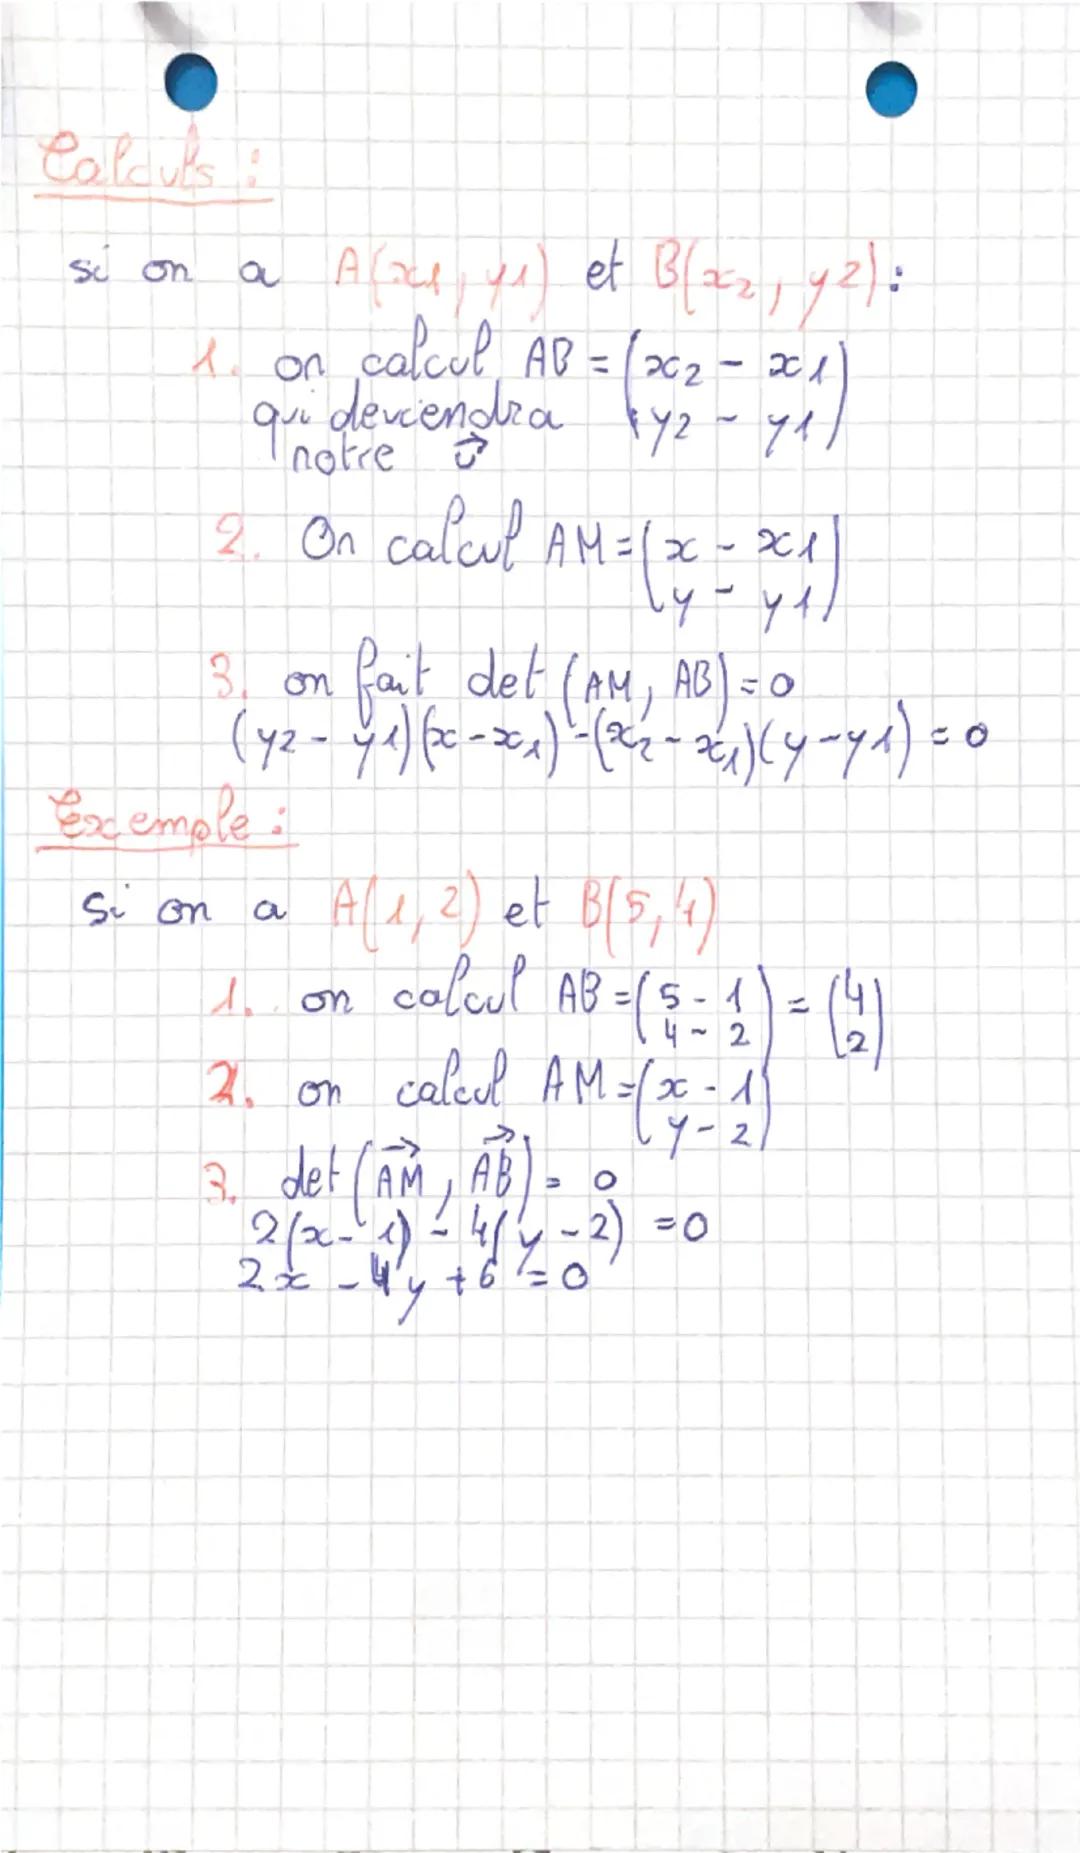 Calculs :
si on a A(x1, y1) et B(x2, y2) :
1. on calcul AB = (x2 - x1)
qui deviendra (y2 - y1)
notre u⃗
2. On calcul AM = (x - x1)
(y - y1)
3. on fait det (AM, AB) = 0
(y2 - y1)(x - x1) - (x2 - x1)(y - y1) = 0
Exemple :
si on a A(1, 2) et B(5, 4)
1. on calcul AB = (5 - 1) = (4)
(4 - 2) (2)
2. on calcul AM = (x - 1)
(y - 2)
3. det (AM⃗, AB⃗) = 0
2(x - 1) - 4(y - 2) = 0
2x - 4y + 6 = 0